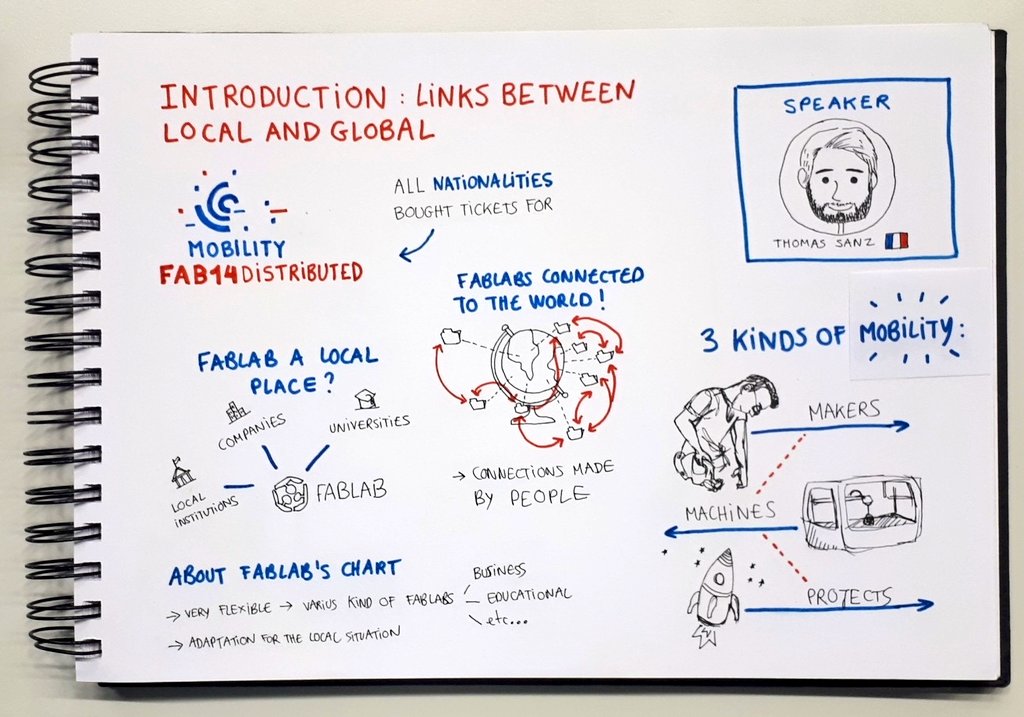 INTRODUCTION : LINKS BETWEEN
LOCAL AND GLOBAL
SPEAKER
THOMAS SANZ
MOBILITY
FAB14 DISTRIBUTED
ALL NATIONALITIES
BOUGHT TICKETS FOR
FABLABS CONNECTED
TO THE WORLD !
→ CONNECTIONS MADE
BY PEOPLE
FABLAB A LOCAL
PLACE ?
COMPANIES
UNIVERSITIES
LOCAL
INSTITUTIONS
FABLAB
ABOUT FABLAB'S CHART
→ VERY FLEXIBLE → VARIUS KIND OF FABLABS
BUSINESS
EDUCATIONAL
etc...
→ ADAPTATION FOR THE LOCAL SITUATION
3 KINDS OF MOBILITY :
MAKERS
MACHINES
PROJECTS